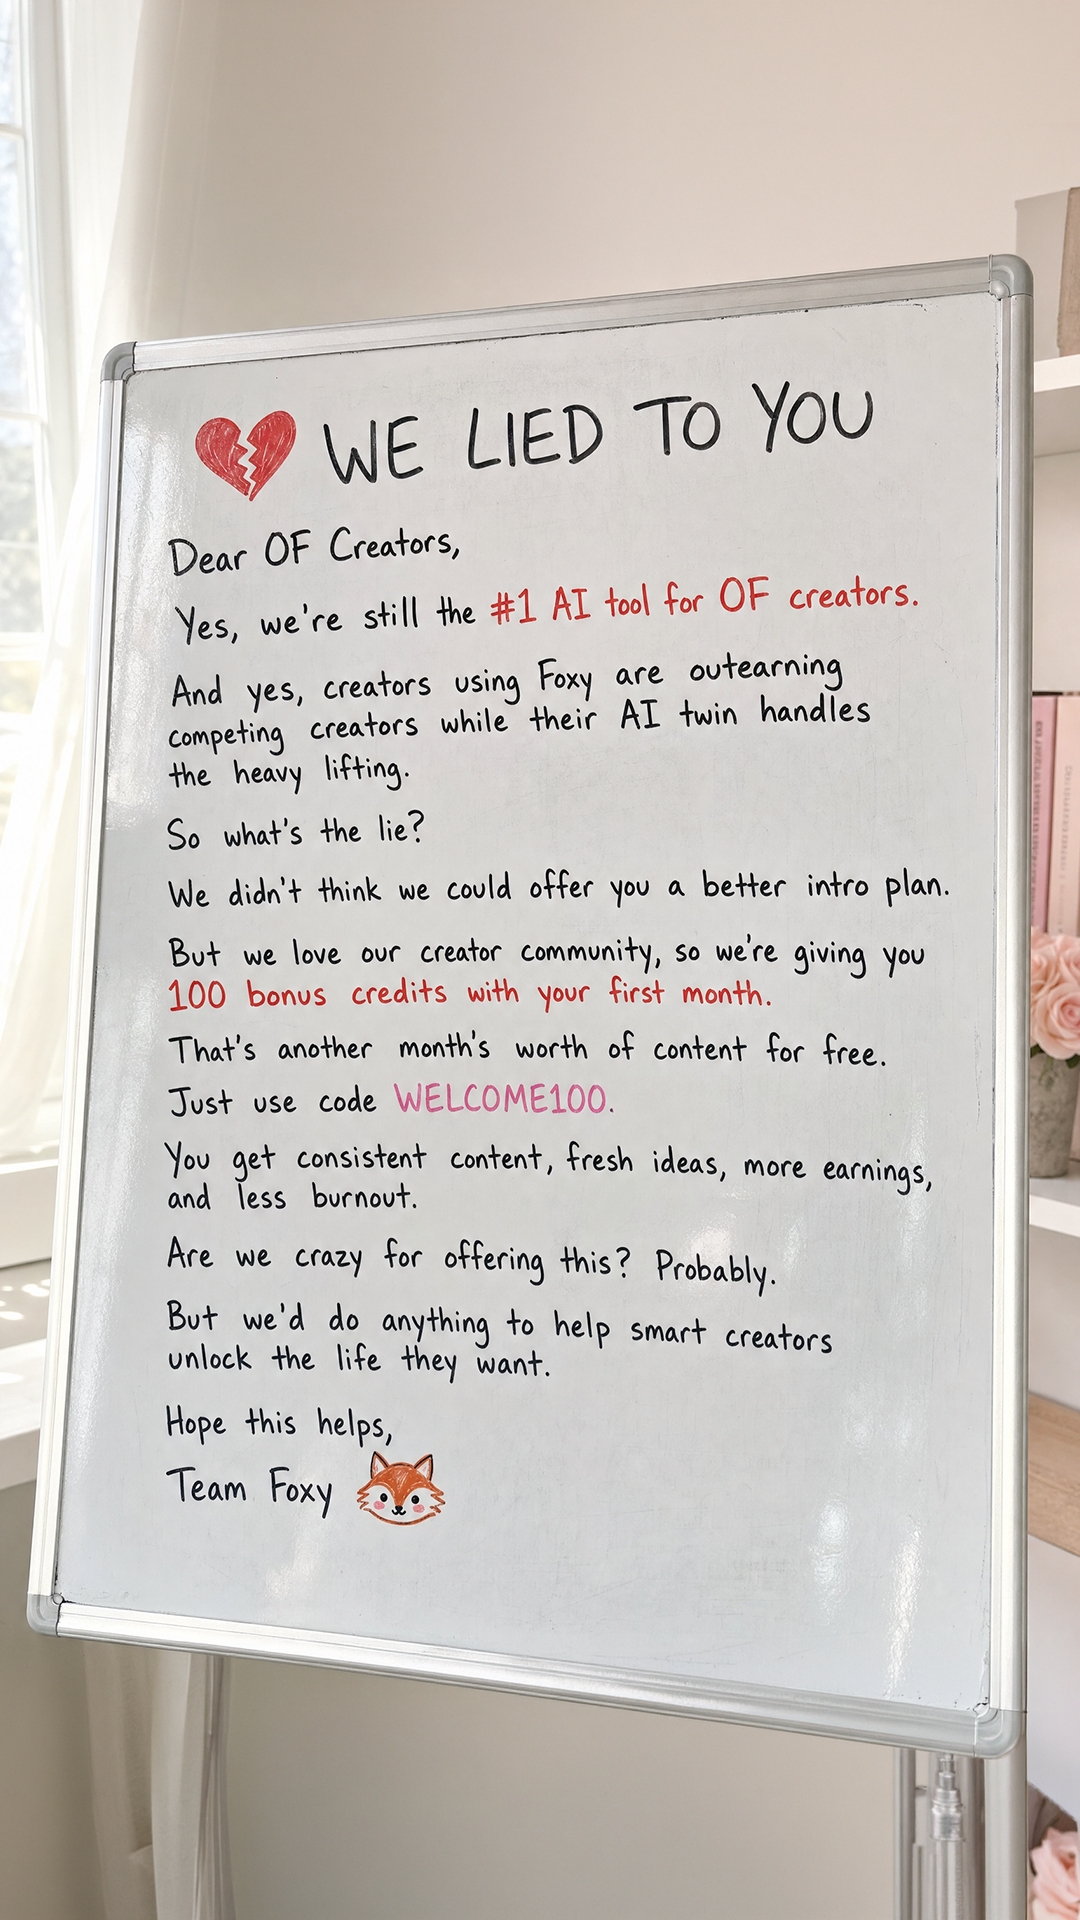 WE LIED TO YOU
Dear OF Creators,
Yes, we're still the #1 AI tool for OF creators.
And yes, creators using Foxy are outearning
competing creators while their AI twin handles
the heavy lifting.
So what's the lie?
We didn't think we could offer you a better intro plan.
But we love our creator community, so we're giving you
100 bonus credits with your first month.
That's another month's worth of content for free.
Just use code WELCOME100.
You get consistent content, fresh ideas, more earnings,
and less burnout.
Are we crazy for offering this? Probably.
But we'd do anything to help smart creators
unlock the life they want.
Hope this helps,
Team Foxy